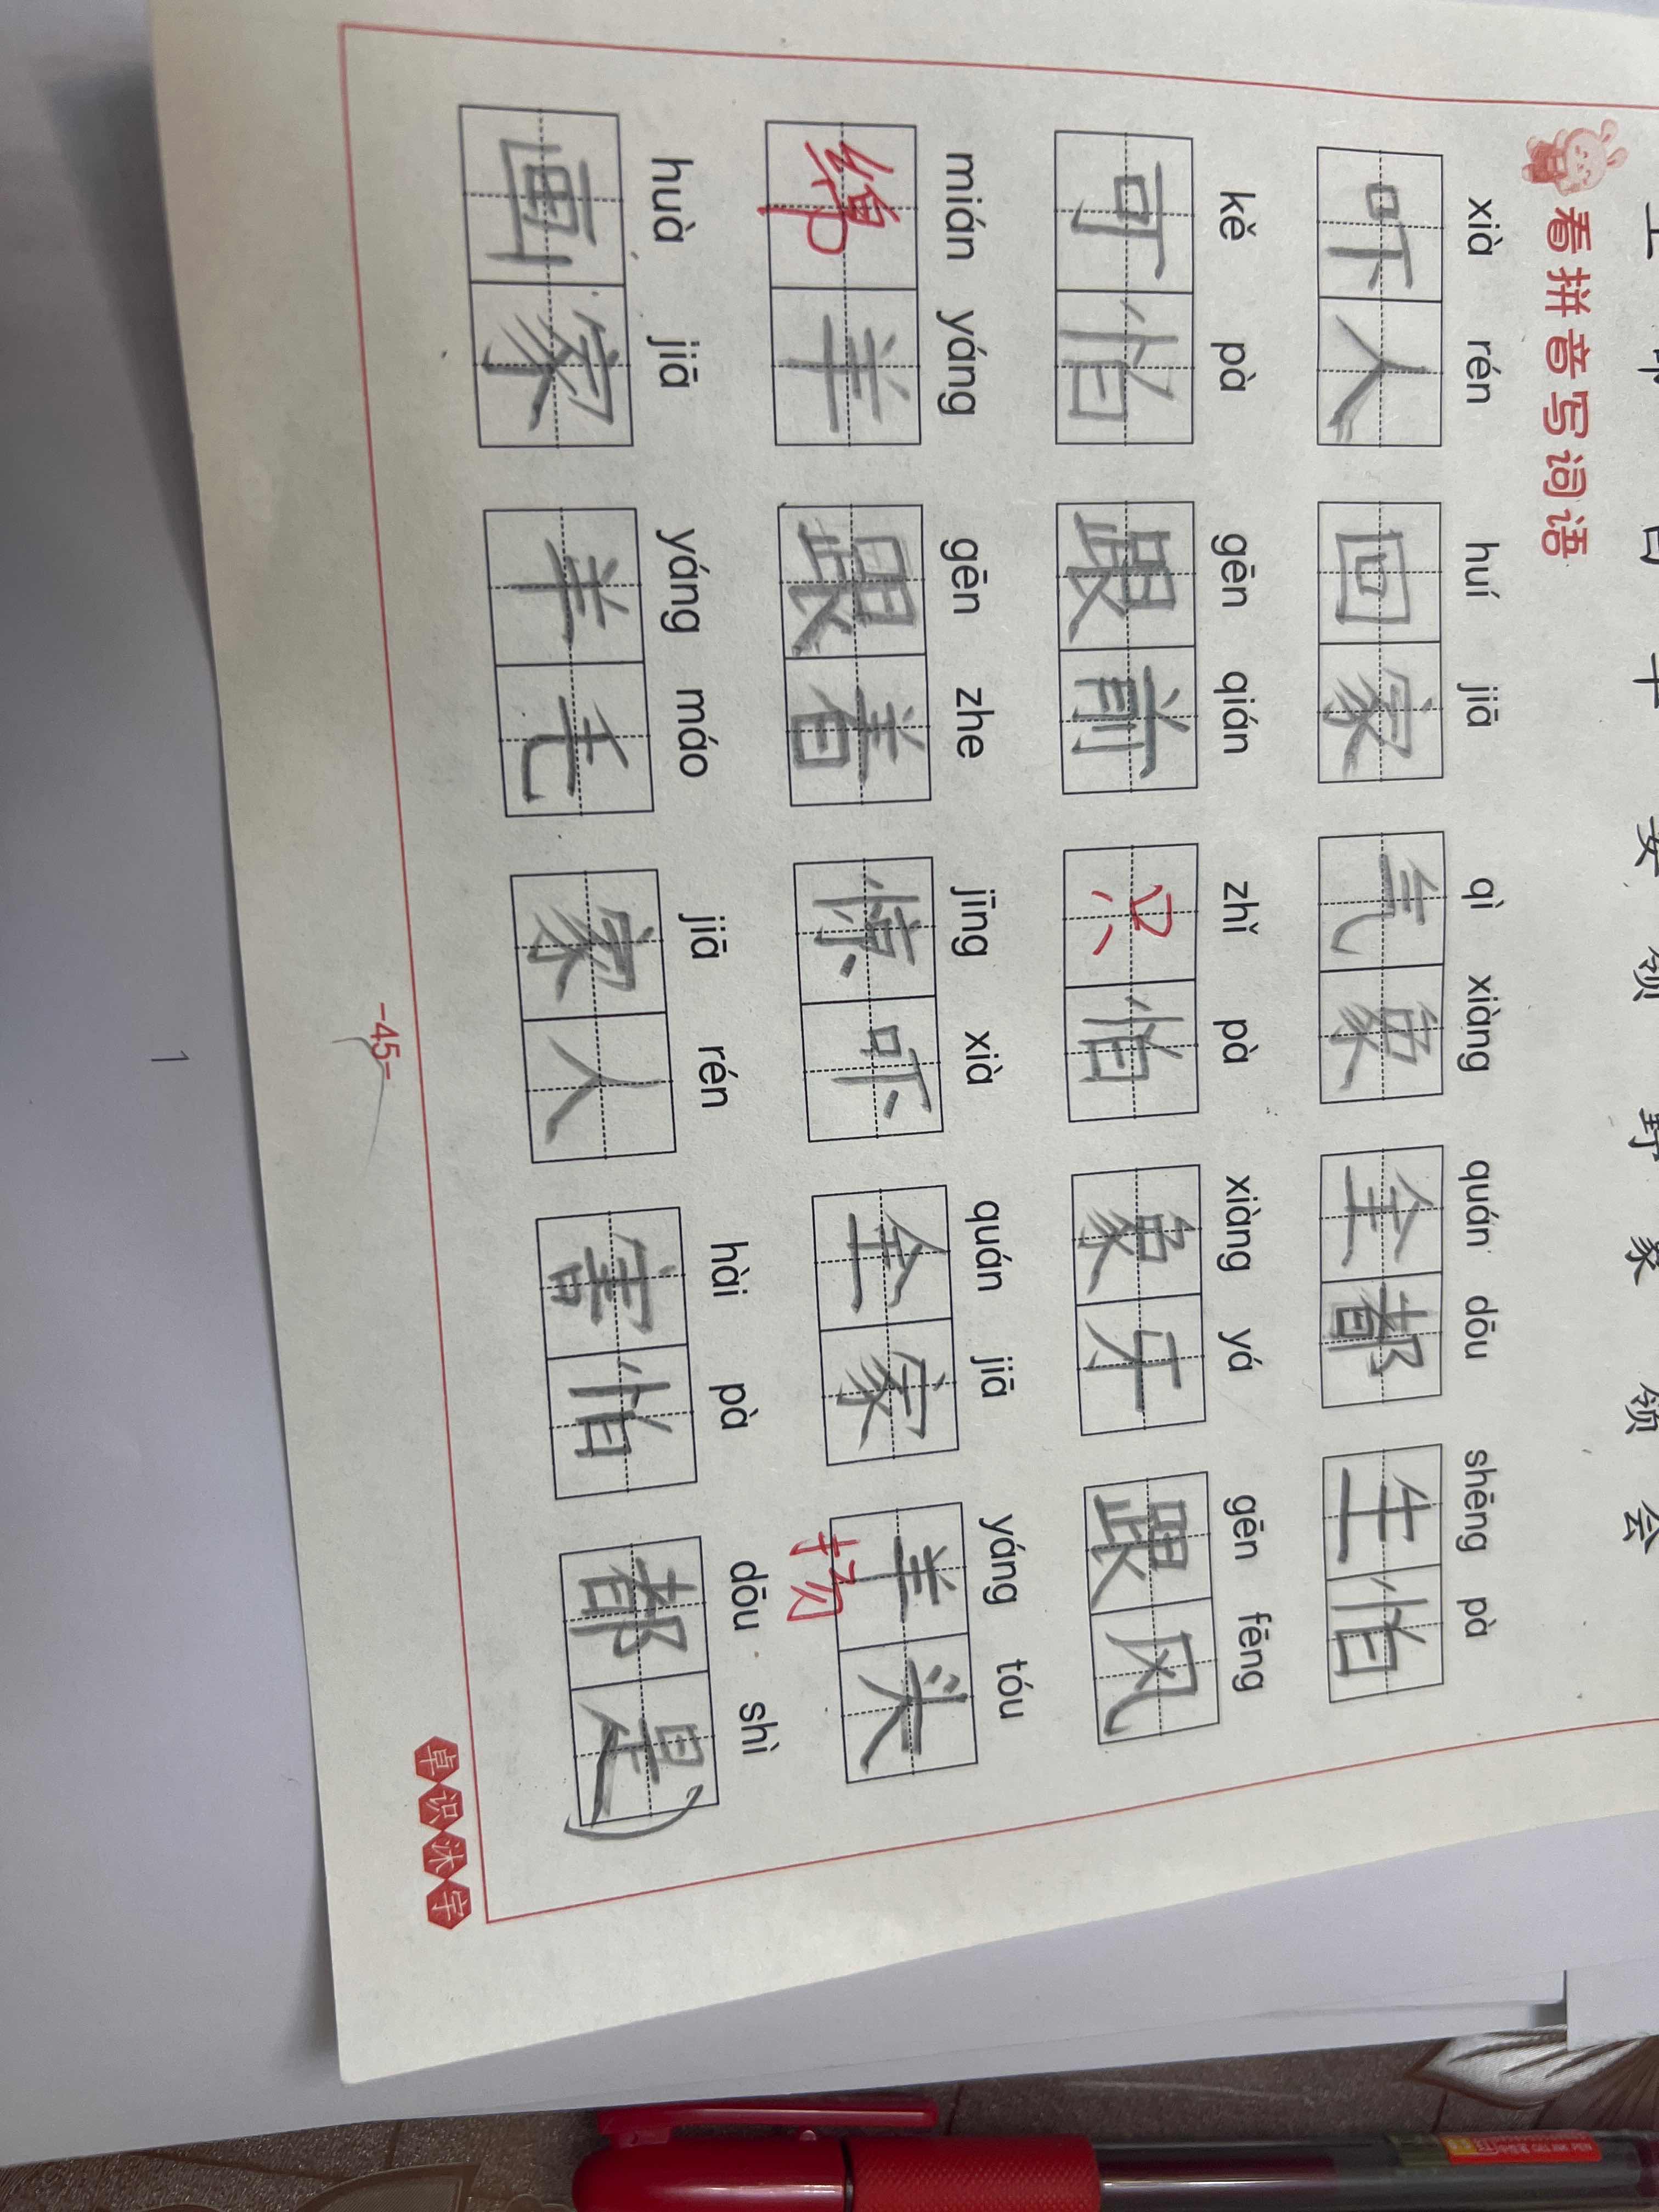 看拼音写词语
xià rén huí jiā qì xiàng quán dōu shēng pà
吓人 回家 气象 全都 生怕
kě pà gēn qián zhǐ pà xiàng yá gēn fēng
可怕 跟前 只怕 象牙 跟风
mián yáng gēn zhe jīng xià quán jiā yáng tóu
绵羊 跟着 惊吓 全家 羊头
扬
huà jiā yáng máo jiā rén hài pà dōu shì
画家 羊毛 家人 害怕 都是
-45-
卓识沐字